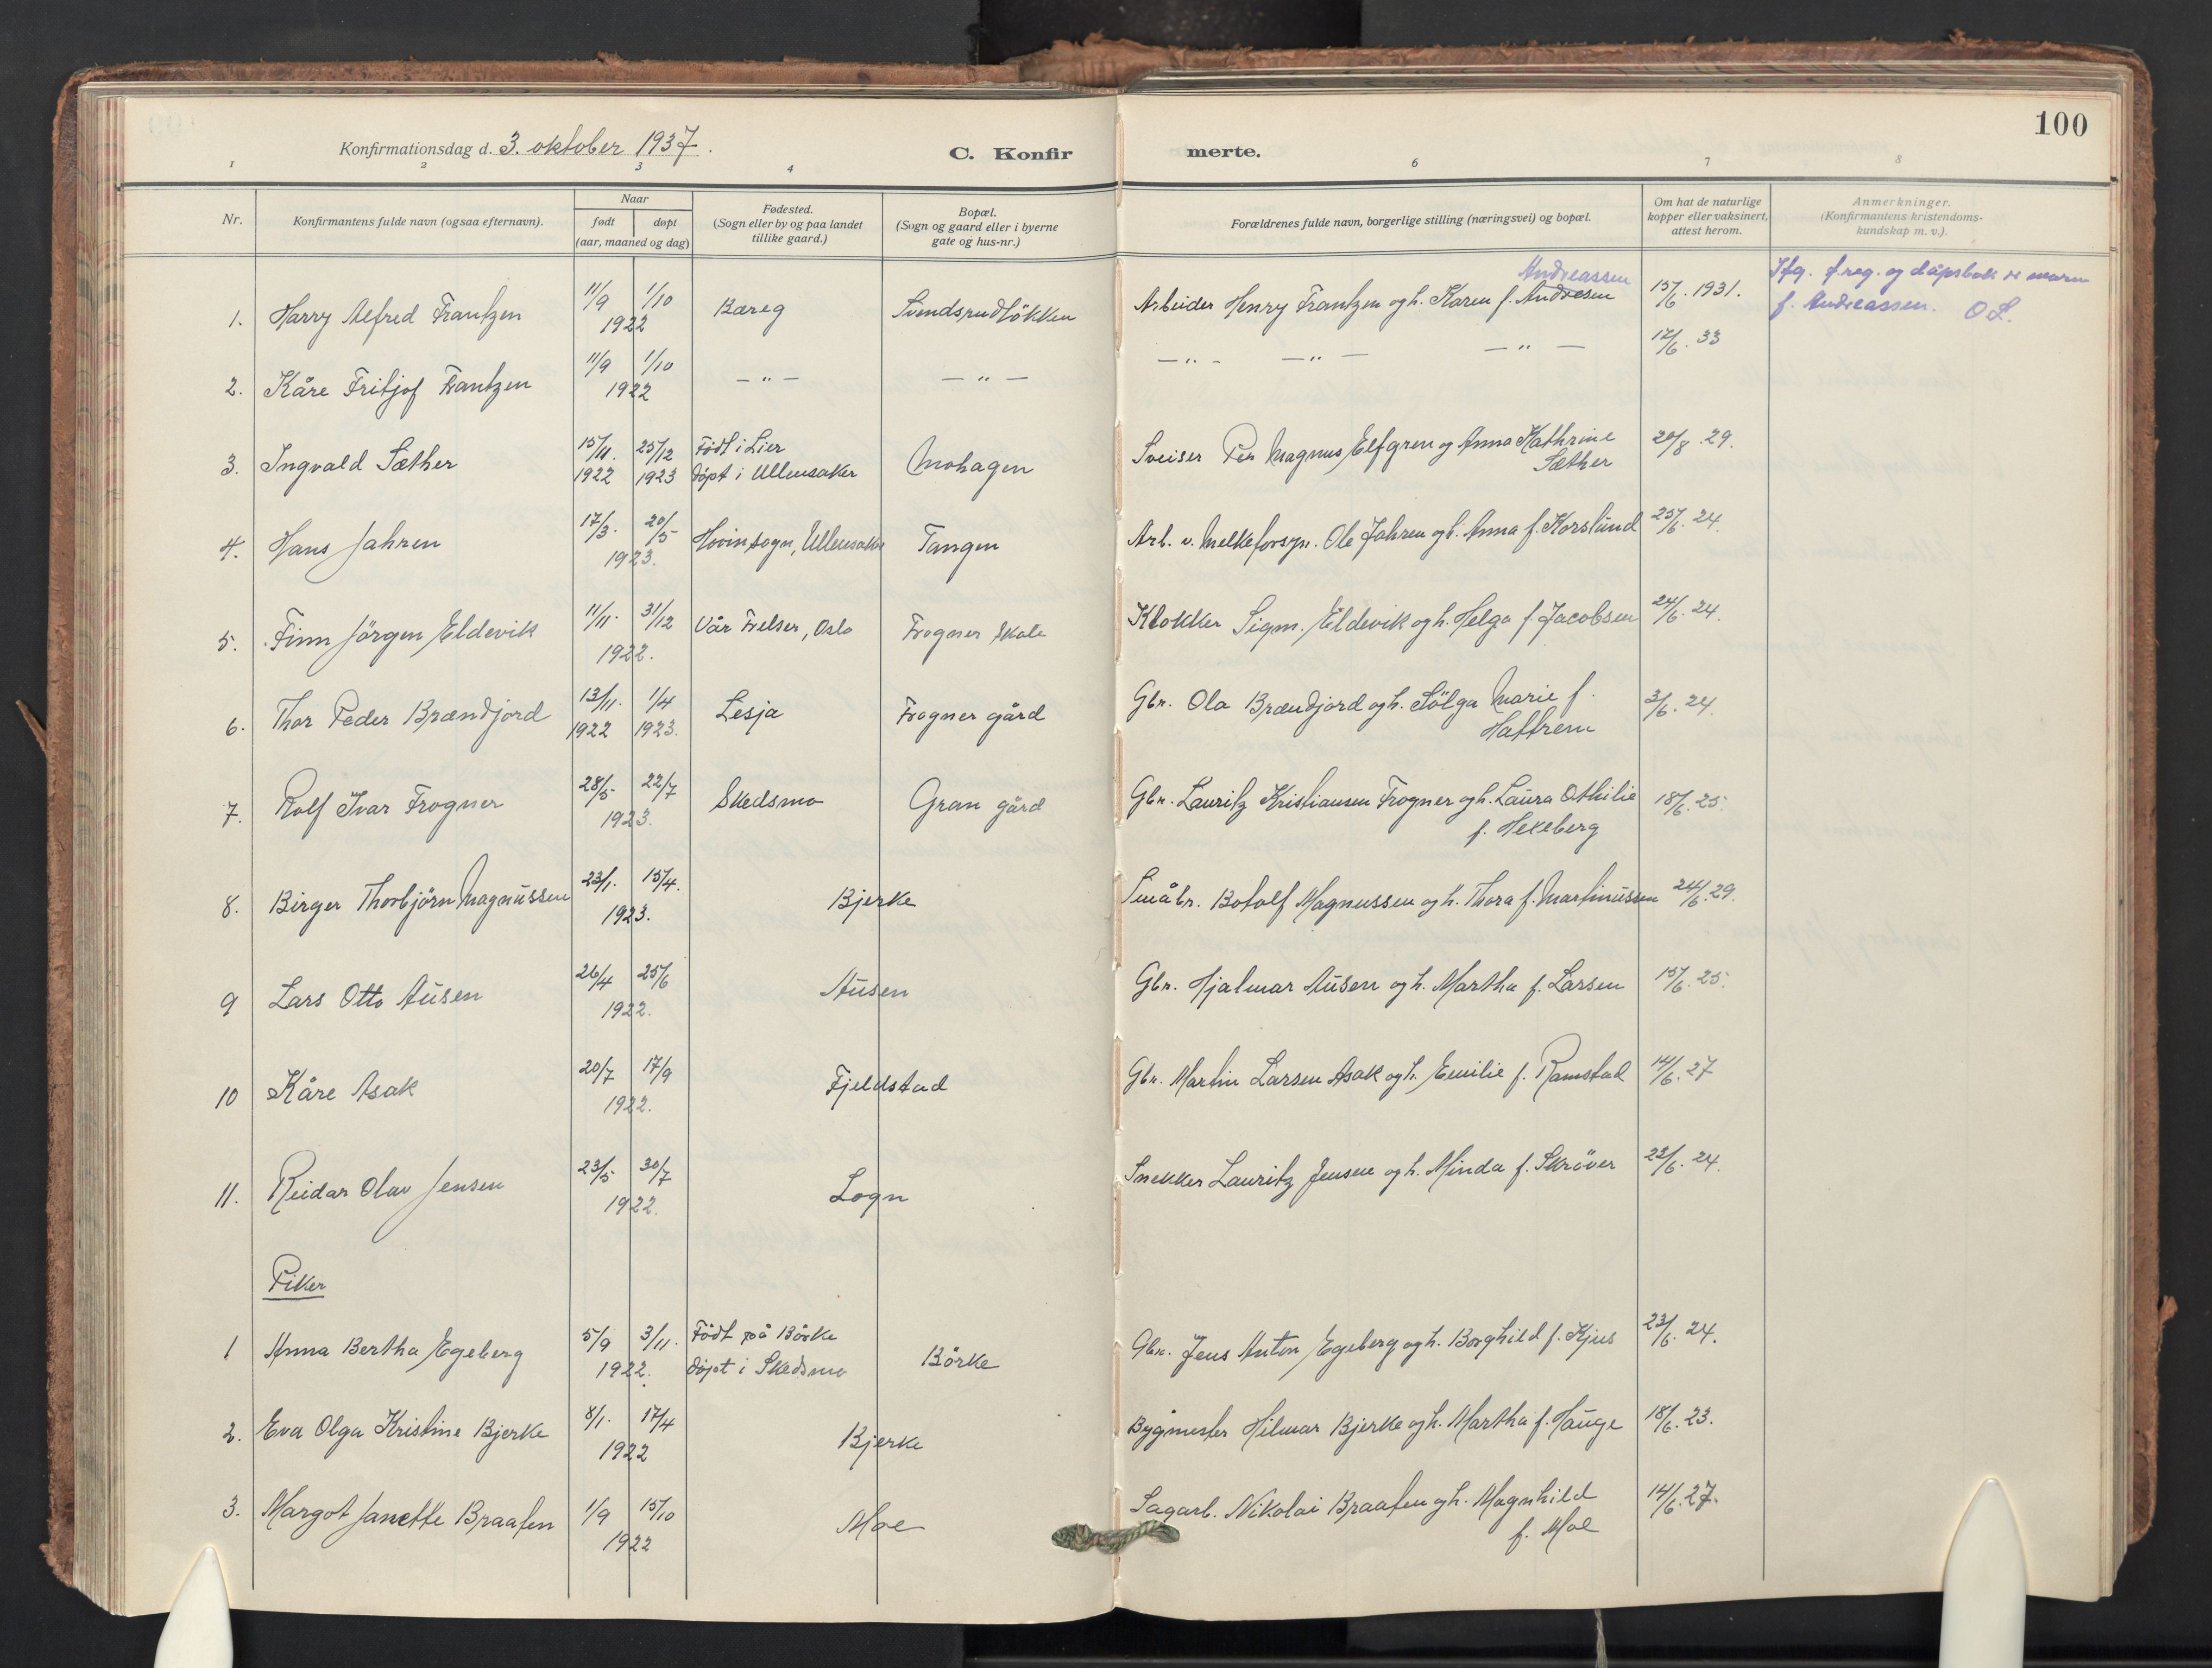 100
Konfirmationsdag d. 3. oktober 1937.
C. Konfirmerte.
1 2 3 4 6 7 8
Nr. | Konfirmantens fulde navn (ogsaa efternavn). | Naar født døpt (aar, maaned og dag) | Fødested. (Sogn eller by og paa landet tillike gaard.) | Bopæl. (Sogn og gaard eller i byerne gate og hus-nr.) | Forældrenes fulde navn, borgerlige stilling (næringsvei) og bopæl. | Om hat de naturlige kopper eller vaksinert, attest herom. | Anmerkninger. (Konfirmantens kristendomskundskap m. v.).
1. Harry Alfred Frantzen | 11/9 1/10 1922 | Bareg | Svendsrudløkken | Arbeider Henry Frantzen og h. Karen f. Andresen Andreassen | 15/6. 1931. | Ifg. f.reg. og dåpsbok er moren f. Andreassen. O.L.
2. Kåre Fritjof Frantzen | 11/9 1/10 1922 | — " — | — " — | — " — — " — — " — | 17/6. 33
3. Ingvald Sæther | 15/11. 1922 25/12 1923 | Födt i Lier döpt i Ullensaker | Mohagen | Sveiser Per Magnus Elfgren og Anna Kathrine Sæther | 20/8. 29.
4. Hans Jahren | 17/3. 20/5 1923. | Hovin sogn, Ullensaker | Tangen | Arb. v. Melkeforsyn. Ole Jahren og h. Anna f. Korslund | 25/6. 24.
5. Finn Jörgen Eldevik | 11/11. 31/12 1922. | Vår Frelser, Oslo | Frogner skole | Klokker Sigm. Eldevik og h. Helga f. Jacobsen | 24/6. 24.
6. Thor Peder Brændjord | 13/11. 1922 1/4 1923. | Lesja | Frogner gård | Gbr. Ola Brændjord og h. Sölga Marie f. Hattrem | 3/6. 24.
7. Rolf Ivar Frogner | 28/5 22/7 1923. | Skedsmo | Gran gård | Gbr. Lauritz Kristiansen Frogner og h. Laura Othilie f. Hexeberg | 18/6. 25.
8. Birger Thorbjörn Magnussen | 23/1. 15/4. 1923. | Bjerke | Småbr. Botolf Magnussen og h. Thora f. Martinussen | 24/6. 29.
9 Lars Otto Ausen | 26/4 25/6 1922. | Ausen | Gbr. Hjalmar Ausen og h. Martha f. Larsen | 15/6. 25.
10 Kåre Asak | 20/7 17/9 1922. | Fjeldstad | Gbr. Martin Larsen Asak og h. Emilie f. Ramstad | 14/6. 27
11. Reidar Olav Jensen | 23/5 30/7 1922. | Logn | Snekker Lauritz Jensen og h. Minda f. Skröver | 22/6. 24.
Piker
1 Anna Bertha Egeberg | 5/9 3/11. 1922. | Födt på Börke döpt i Skedsmo | Börke | Gbr. Jens Anton Egeberg og h. Borghild f. Kjus | 23/6. 24.
2. Eva Olga Kristine Bjerke | 8/1. 17/4 1922 | Bjerke | Bygmester Hilmar Bjerke og h. Martha f. Hauge | 18/6. 23.
3. Margot Janette Braaten | 1/9 15/10 1922 | Moe | Sagarb. Nikolai Braaten og h. Magnhild f. Moe | 14/6. 27.